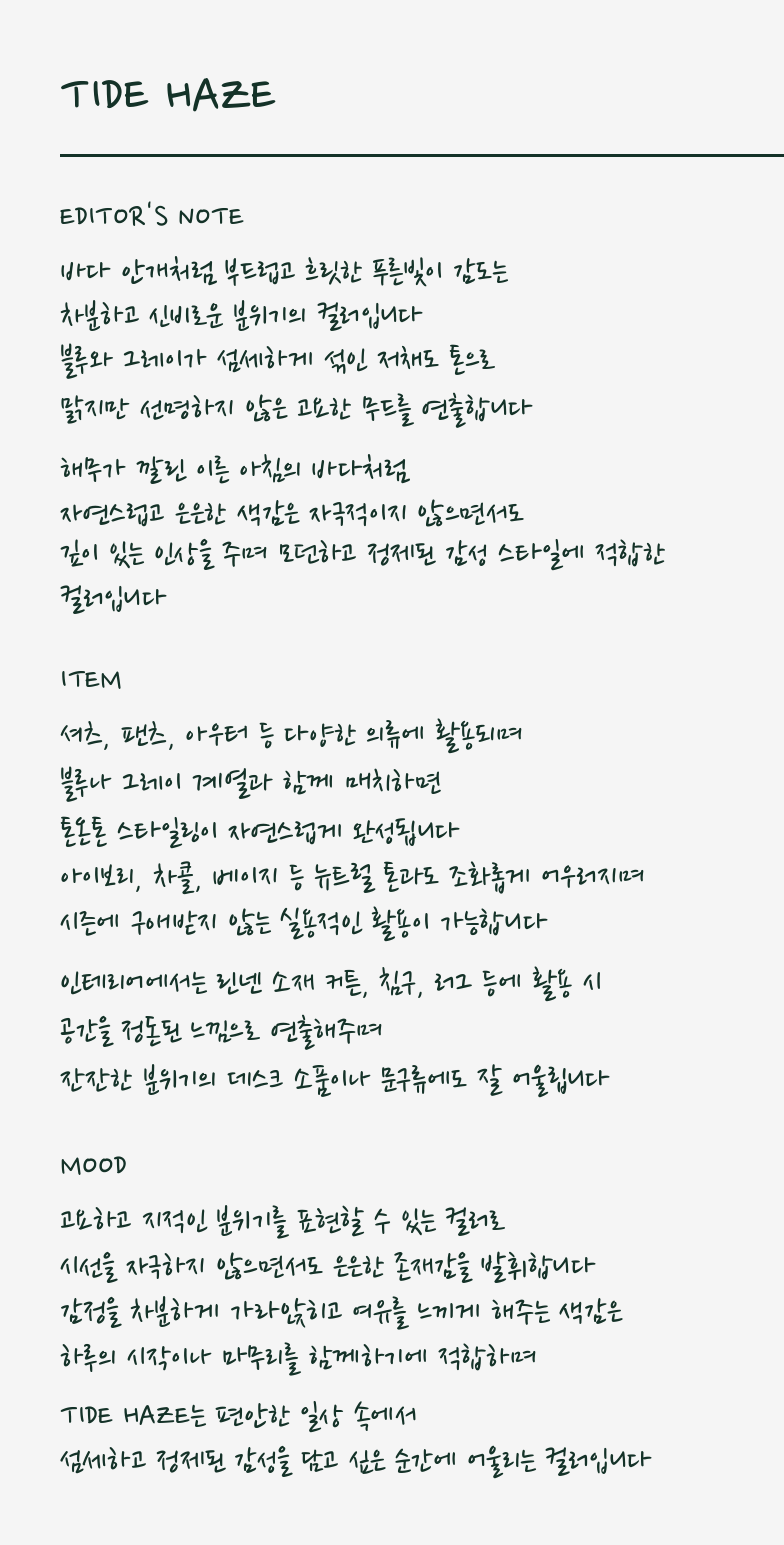 TIDE HAZE
EDITOR'S NOTE
바다 안개처럼 부드럽고 흐릿한 푸른빛이 감도는
차분하고 신비로운 분위기의 컬러입니다
블루와 그레이가 섬세하게 섞인 저채도 톤으로
맑지만 선명하지 않은 고요한 무드를 연출합니다
해무가 깔린 이른 아침의 바다처럼
자연스럽고 은은한 색감은 자극적이지 않으면서도
깊이 있는 인상을 주며 모던하고 정제된 감성 스타일에 적합한
컬러입니다
ITEM
셔츠, 팬츠, 아우터 등 다양한 의류에 활용되며
블루나 그레이 계열과 함께 매치하면
톤온톤 스타일링이 자연스럽게 완성됩니다
아이보리, 차콜, 베이지 등 뉴트럴 톤과도 조화롭게 어우러지며
시즌에 구애받지 않는 실용적인 활용이 가능합니다
인테리어에서는 린넨 소재 커튼, 침구, 러그 등에 활용 시
공간을 정돈된 느낌으로 연출해주며
잔잔한 분위기의 데스크 소품이나 문구류에도 잘 어울립니다
MOOD
고요하고 지적인 분위기를 표현할 수 있는 컬러로
시선을 자극하지 않으면서도 은은한 존재감을 발휘합니다
감정을 차분하게 가라앉히고 여유를 느끼게 해주는 색감은
하루의 시작이나 마무리를 함께하기에 적합하며
TIDE HAZE는 편안한 일상 속에서
섬세하고 정제된 감성을 담고 싶은 순간에 어울리는 컬러입니다